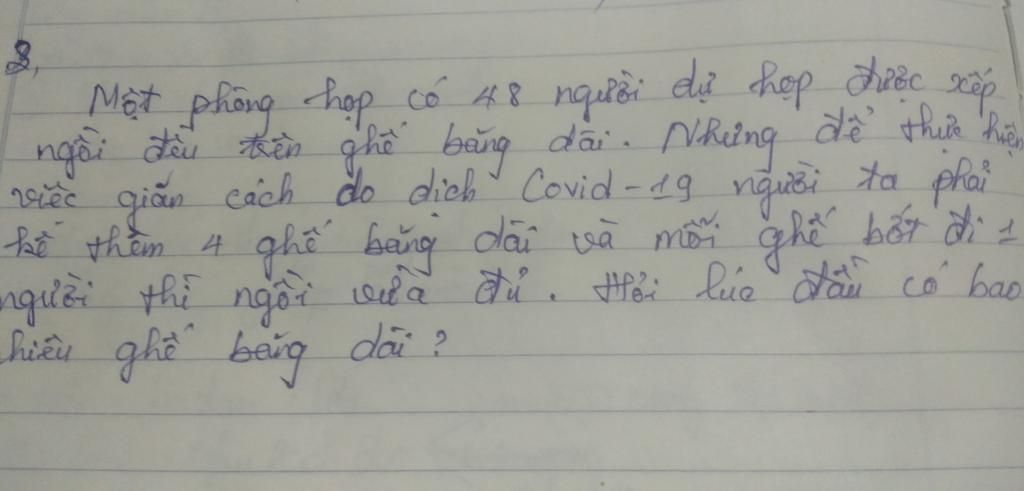 3,
Một phòng họp có 48 người dự họp được xếp
ngồi đều trên ghế băng dài. Nhưng để thực hiện
việc giãn cách do dịch Covid-19 người ta phải
kê thêm 4 ghế băng dài và mỗi ghế bớt đi 1
người thì ngồi vừa đủ. Hỏi lúc đầu có bao
hiêu ghế băng dài?